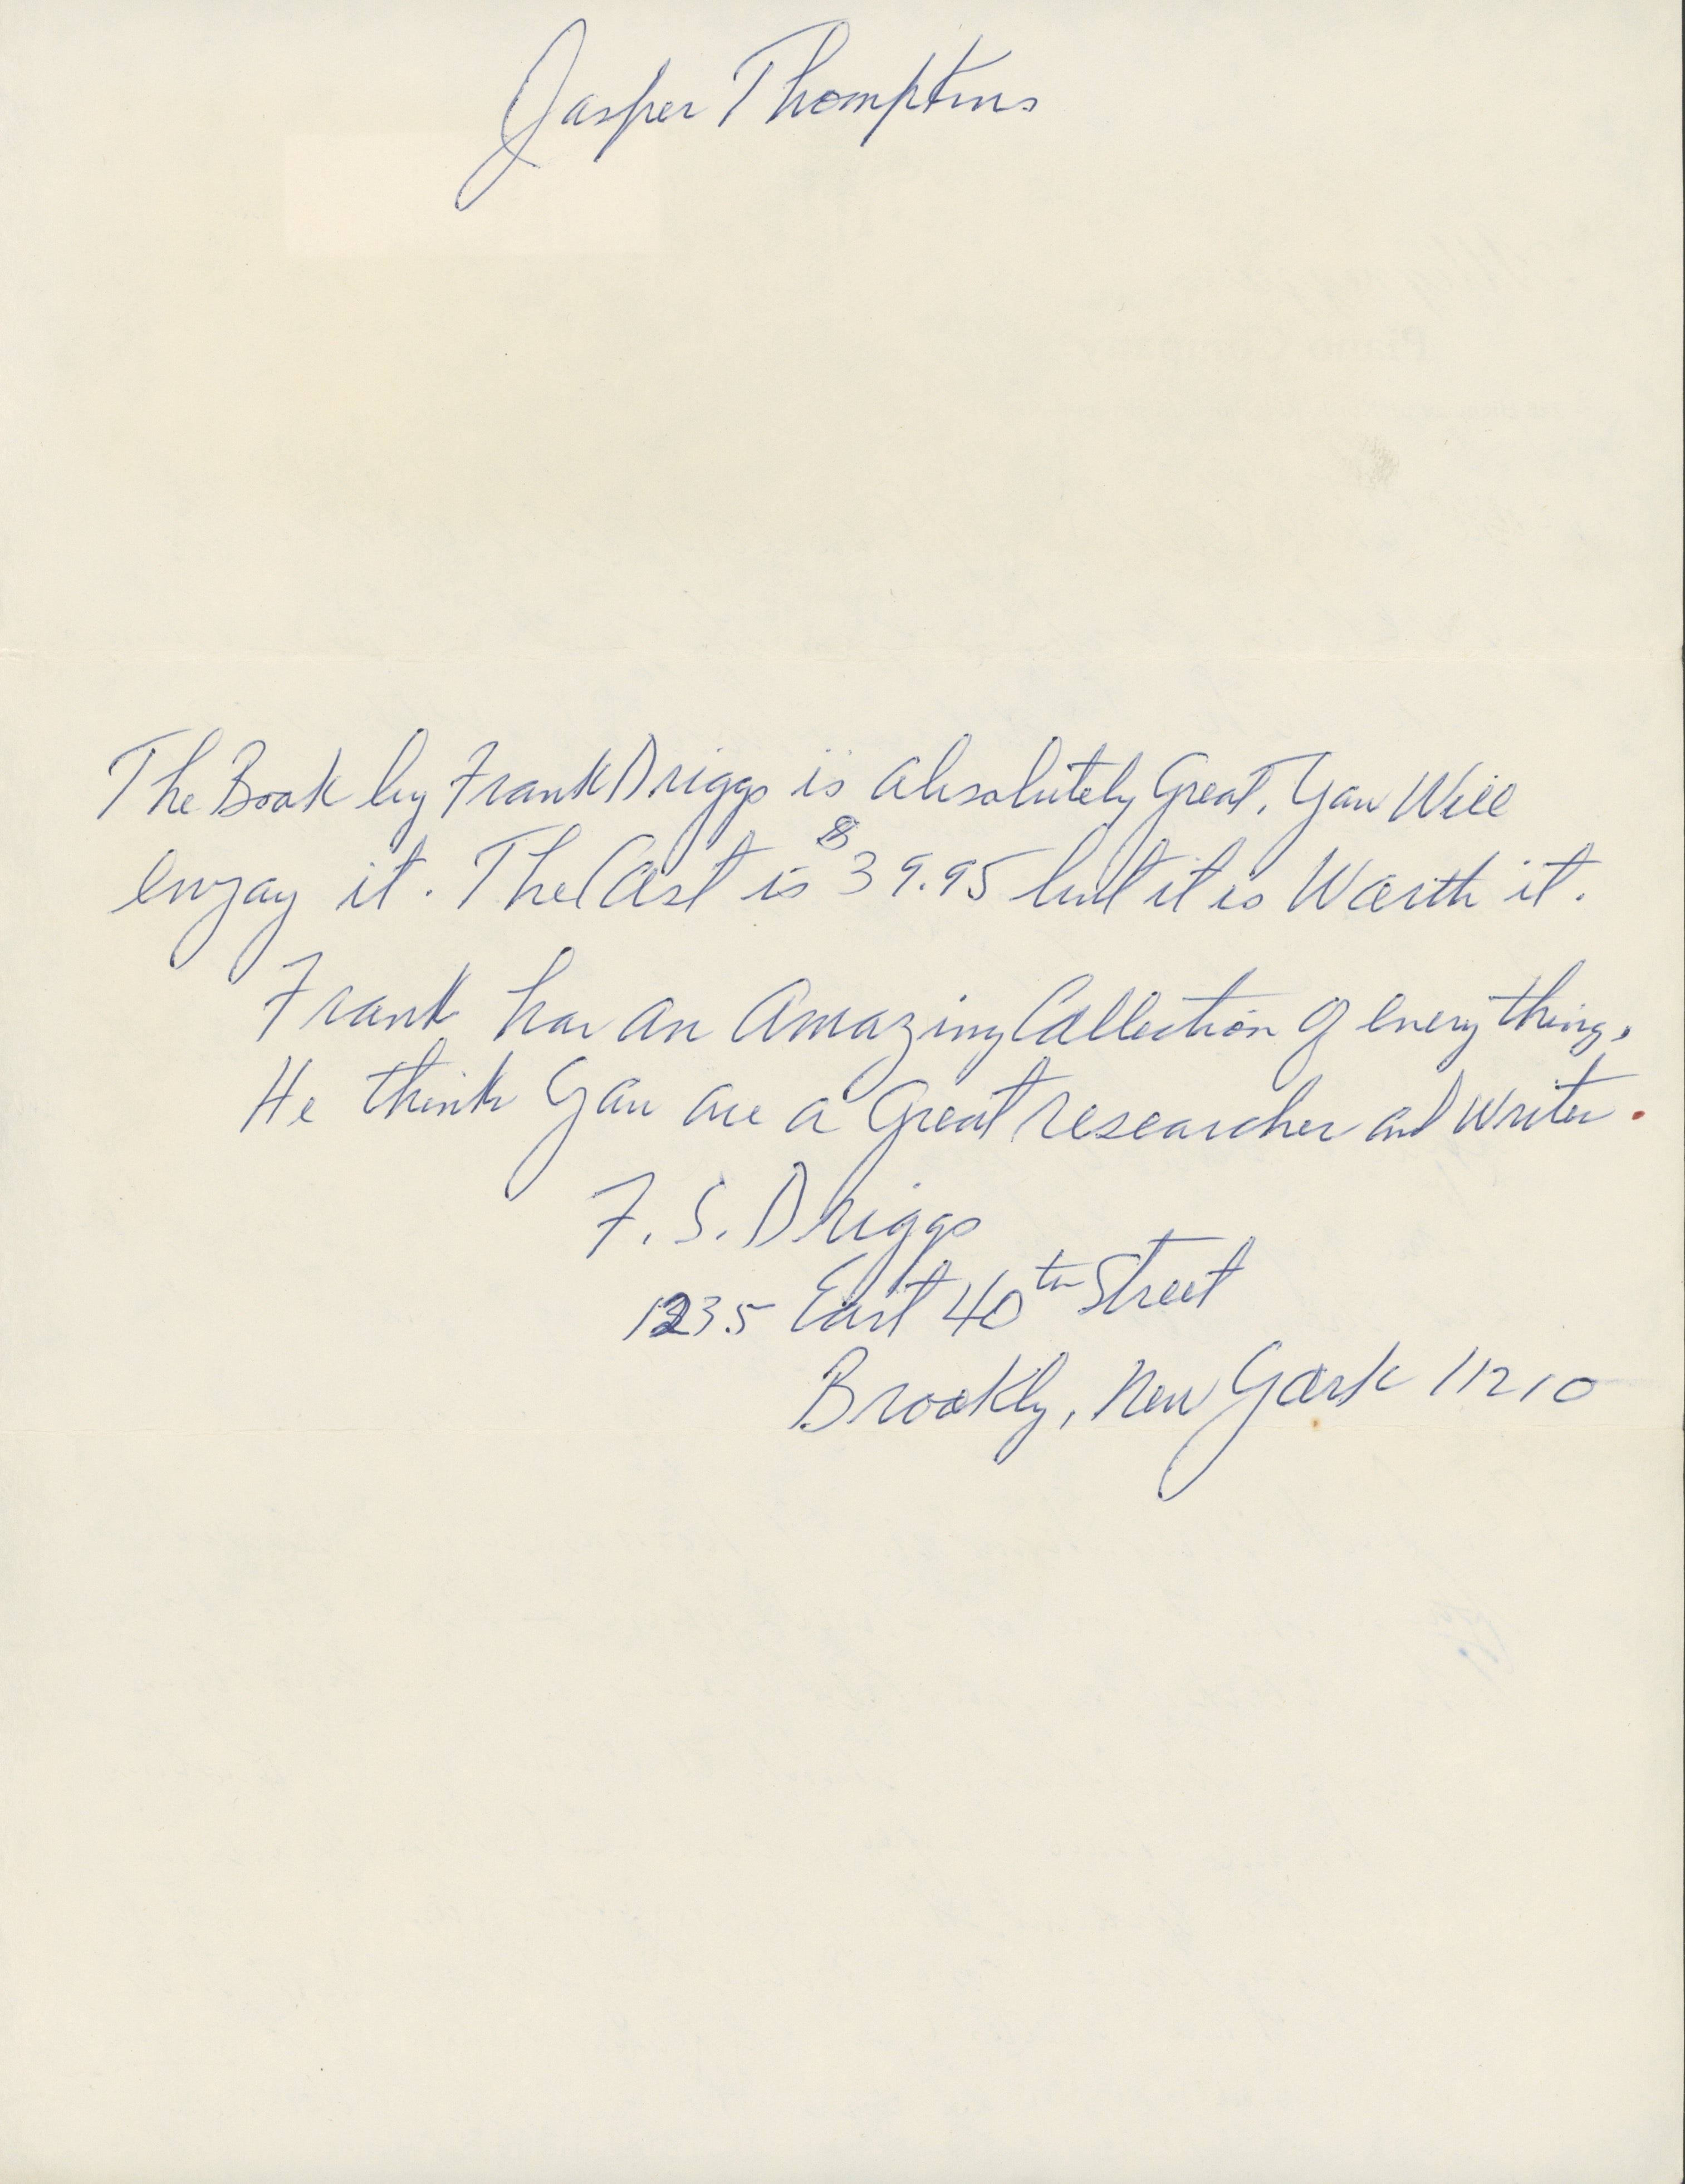 Jasper Thomptins
The Book by Frank Driggs is absolutely Great. You Will
enjoy it. The Cost is $39.95 but it is Worth it.
Frank has an Amazing Collection of everything.
He think You are a Great researcher and writer.
F. S. Driggs
1235 East 40th Street
Brookly, New York 11210